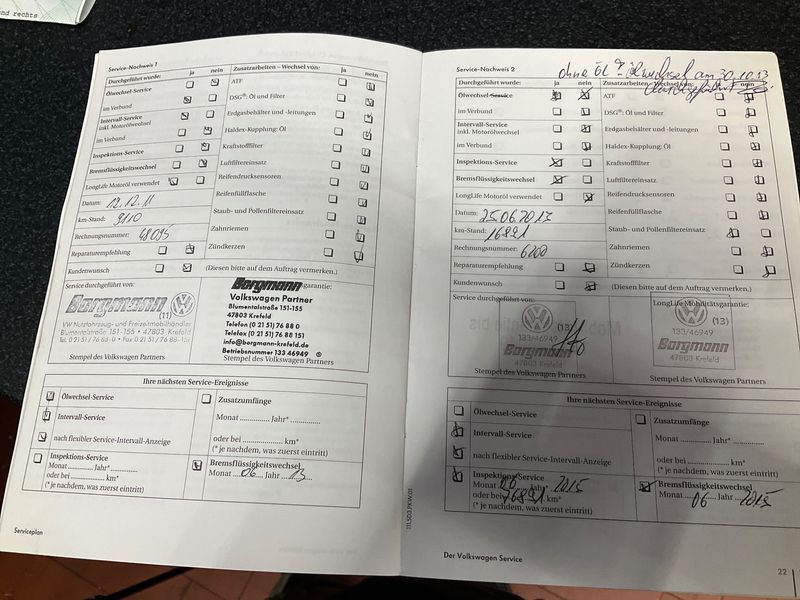 nd rechts
Service-Nachweis 1
Durchgeführt wurde: ja nein Zusatzarbeiten – Wechsel von: ja nein
Ölwechsel-Service ATF
im Verbund DSG®: Öl und Filter
Intervall-Service Erdgasbehälter und -leitungen
inkl. Motorölwechsel
im Verbund Haldex-Kupplung: Öl
Inspektions-Service Kraftstofffilter
Bremsflüssigkeitswechsel Luftfiltereinsatz
LongLife Motoröl verwendet Reifendrucksensoren
Datum: 12.12.11 Reifenfüllflasche
km-Stand: 9110 Staub- und Pollenfiltereinsatz
Rechnungsnummer: 48095 Zahnriemen
Reparaturempfehlung Zündkerzen
Kundenwunsch (Diesen bitte auf dem Auftrag vermerken.)
Service durchgeführt von: garantie:
Borgmann
(11)
VW Nutzfahrzeug- und Freizeitmobilhändler
Blumentalstraße 151-155 • 47803 Krefeld
Tel. 0 21 51 / 76 88-0 • Fax 0 21 51 / 76 88-151
Borgmann
Volkswagen Partner
Blumentalstraße 151-155
47803 Krefeld
Telefon (0 21 51) 76 88 0
Telefax (0 21 51) 76 88 151
info@borgmann-krefeld.de
Betriebsnummer 133 46949
Stempel des Volkswagen Partners Stempel des Volkswagen Partners
Ihre nächsten Service-Ereignisse
Ölwechsel-Service Zusatzumfänge
Intervall-Service Monat Jahr*
nach flexibler Service-Intervall-Anzeige oder bei km*
(* je nachdem, was zuerst eintritt)
Inspektions-Service Bremsflüssigkeitswechsel
Monat Jahr* Monat 06 Jahr 13
oder bei km*
(* je nachdem, was zuerst eintritt)
Serviceplan
111.5D3.PKW.01
Service-Nachweis 2
ohne Öl Ölwechsel am 30.10.13
Durchgeführt wurde: ja nein Zusatzarbeiten – Wechsel von: ja nein
Ölwechsel-Service ATF
im Verbund DSG®: Öl und Filter
Intervall-Service Erdgasbehälter und -leitungen
inkl. Motorölwechsel
im Verbund Haldex-Kupplung: Öl
Inspektions-Service Kraftstofffilter
Bremsflüssigkeitswechsel Luftfiltereinsatz
LongLife Motoröl verwendet Reifendrucksensoren
Datum: 25.06.2013 Reifenfüllflasche
km-Stand: 16891 Staub- und Pollenfiltereinsatz
Rechnungsnummer: 6200 Zahnriemen
Reparaturempfehlung Zündkerzen
Kundenwunsch (Diesen bitte auf dem Auftrag vermerken.)
Service durchgeführt von: LongLife Mobilitätsgarantie:
(13)
133/46949
Borgmann
47803 Krefeld
133/46949
Borgmann
47803 Krefeld
Stempel des Volkswagen Partners Stempel des Volkswagen Partners
Ihre nächsten Service-Ereignisse
Ölwechsel-Service Zusatzumfänge
Intervall-Service Monat Jahr*
nach flexibler Service-Intervall-Anzeige oder bei km*
(* je nachdem, was zuerst eintritt)
Inspektions-Service Bremsflüssigkeitswechsel
Monat 06 Jahr 2015 Monat 06 Jahr 2015
oder bei 76891 km*
(* je nachdem, was zuerst eintritt)
Der Volkswagen Service
22